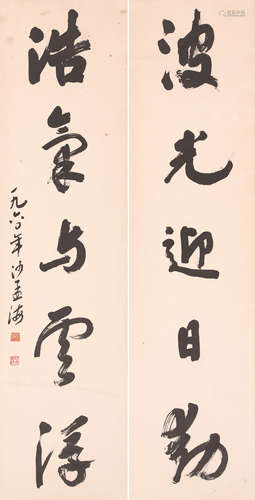 波光迎日動
浩氣与雲浮
一九六〇年 沙孟海